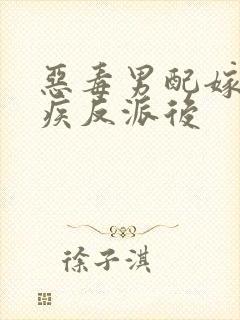 惡毒男配嫁
疾反派後
徐子淇